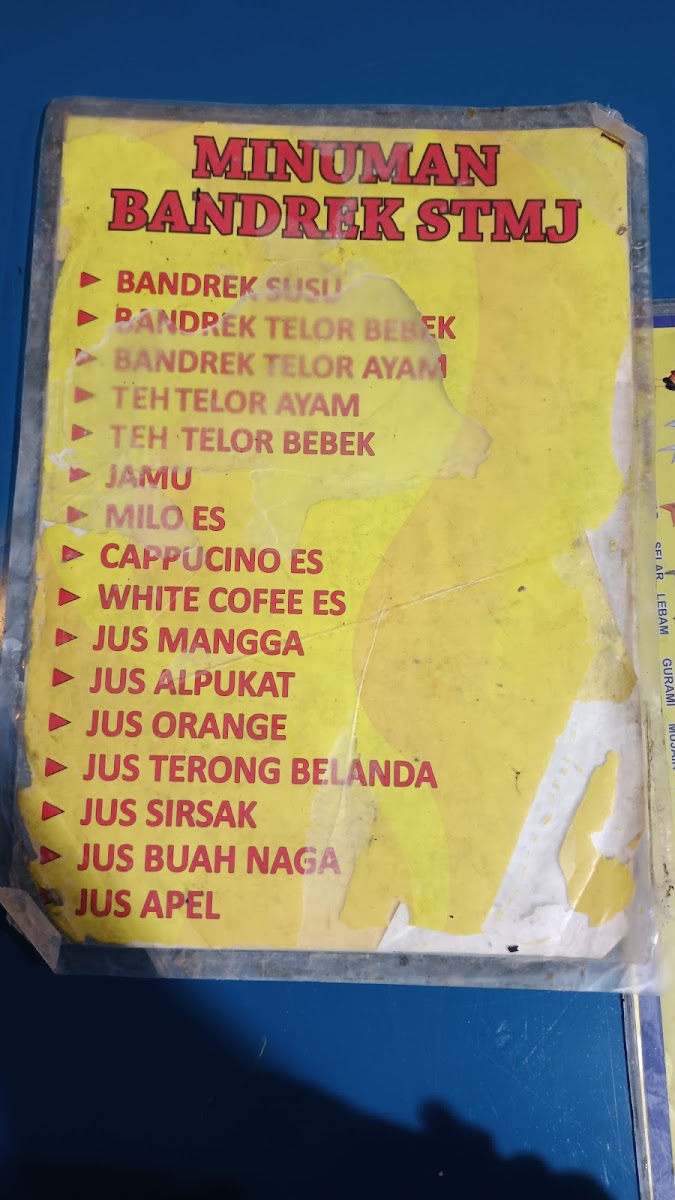 MINUMAN
BANDREK STMJ
BANDREK SUSU
BANDREK TELOR BEBEK
BANDREK TELOR AYAM
TEH TELOR AYAM
TEH TELOR BEBEK
JAMU
MILO ES
CAPPUCINO ES
WHITE COFEE ES
JUS MANGGA
JUS ALPUKAT
JUS ORANGE
JUS TERONG BELANDA
JUS SIRSAK
JUS BUAH NAGA
JUS APEL
SELAR LEBAM GURAMI MUJAIR